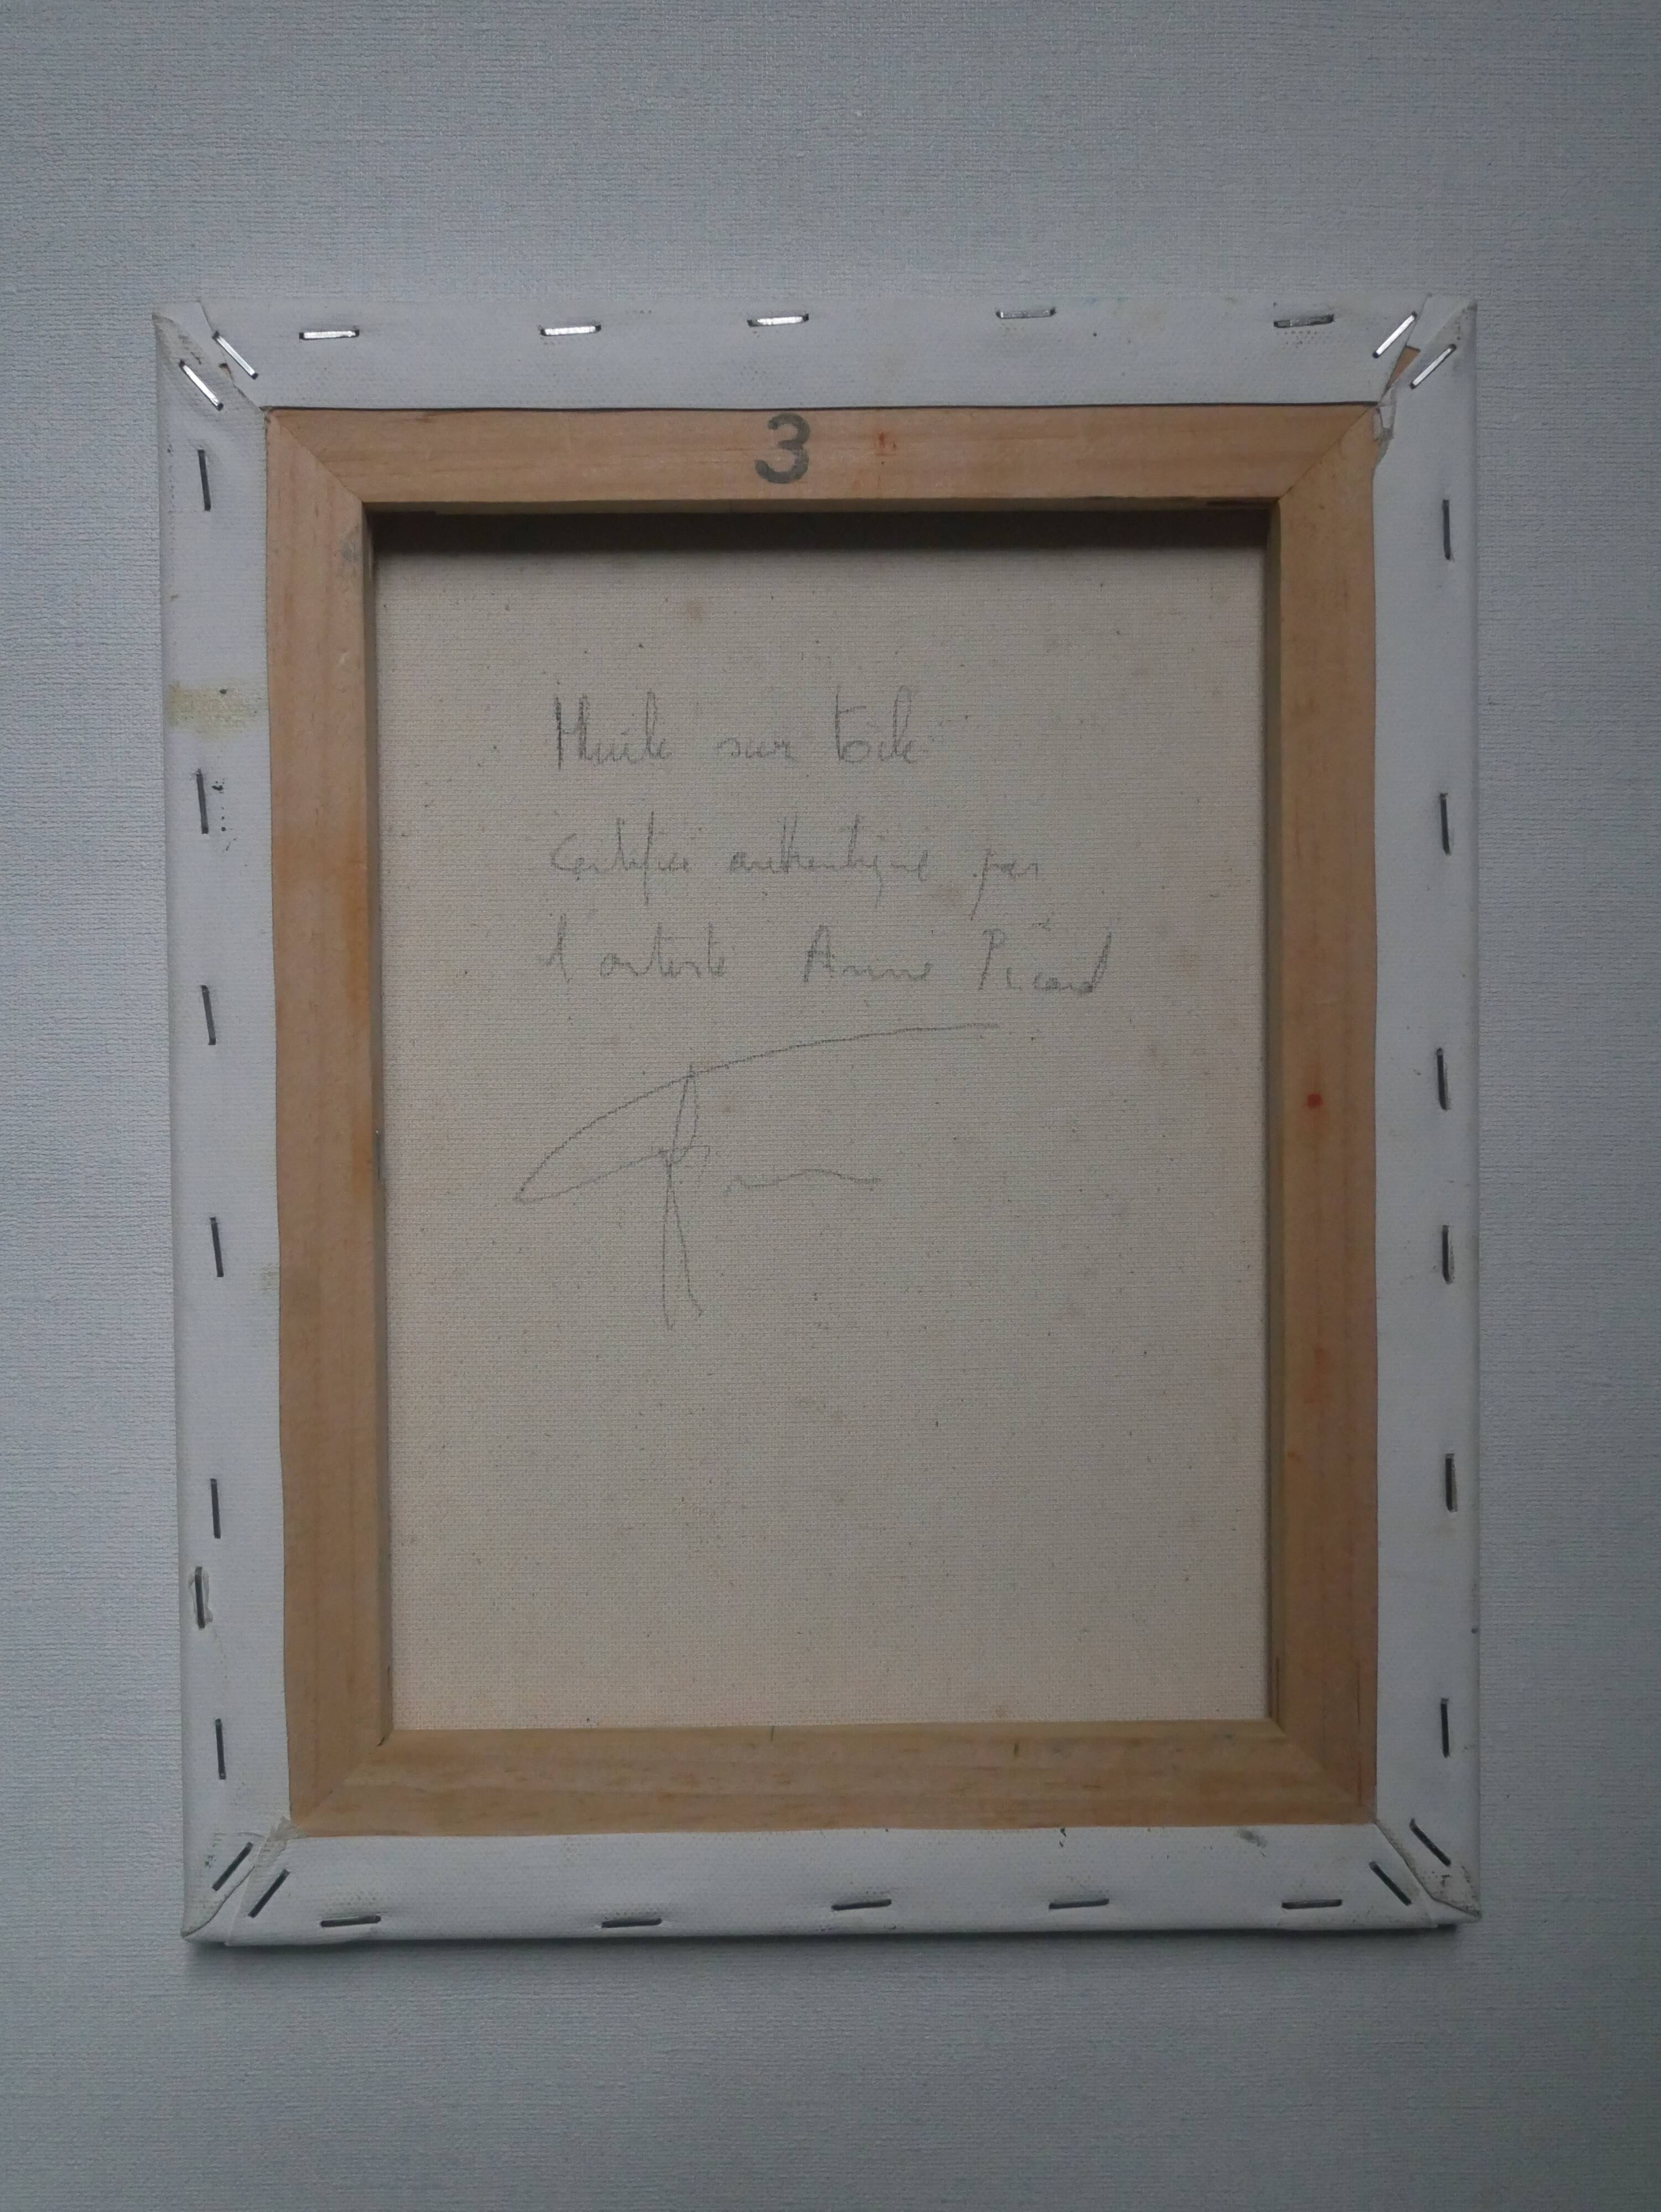 3
Huile sur toile
certifiée authentique par
l'artiste Anne Picard